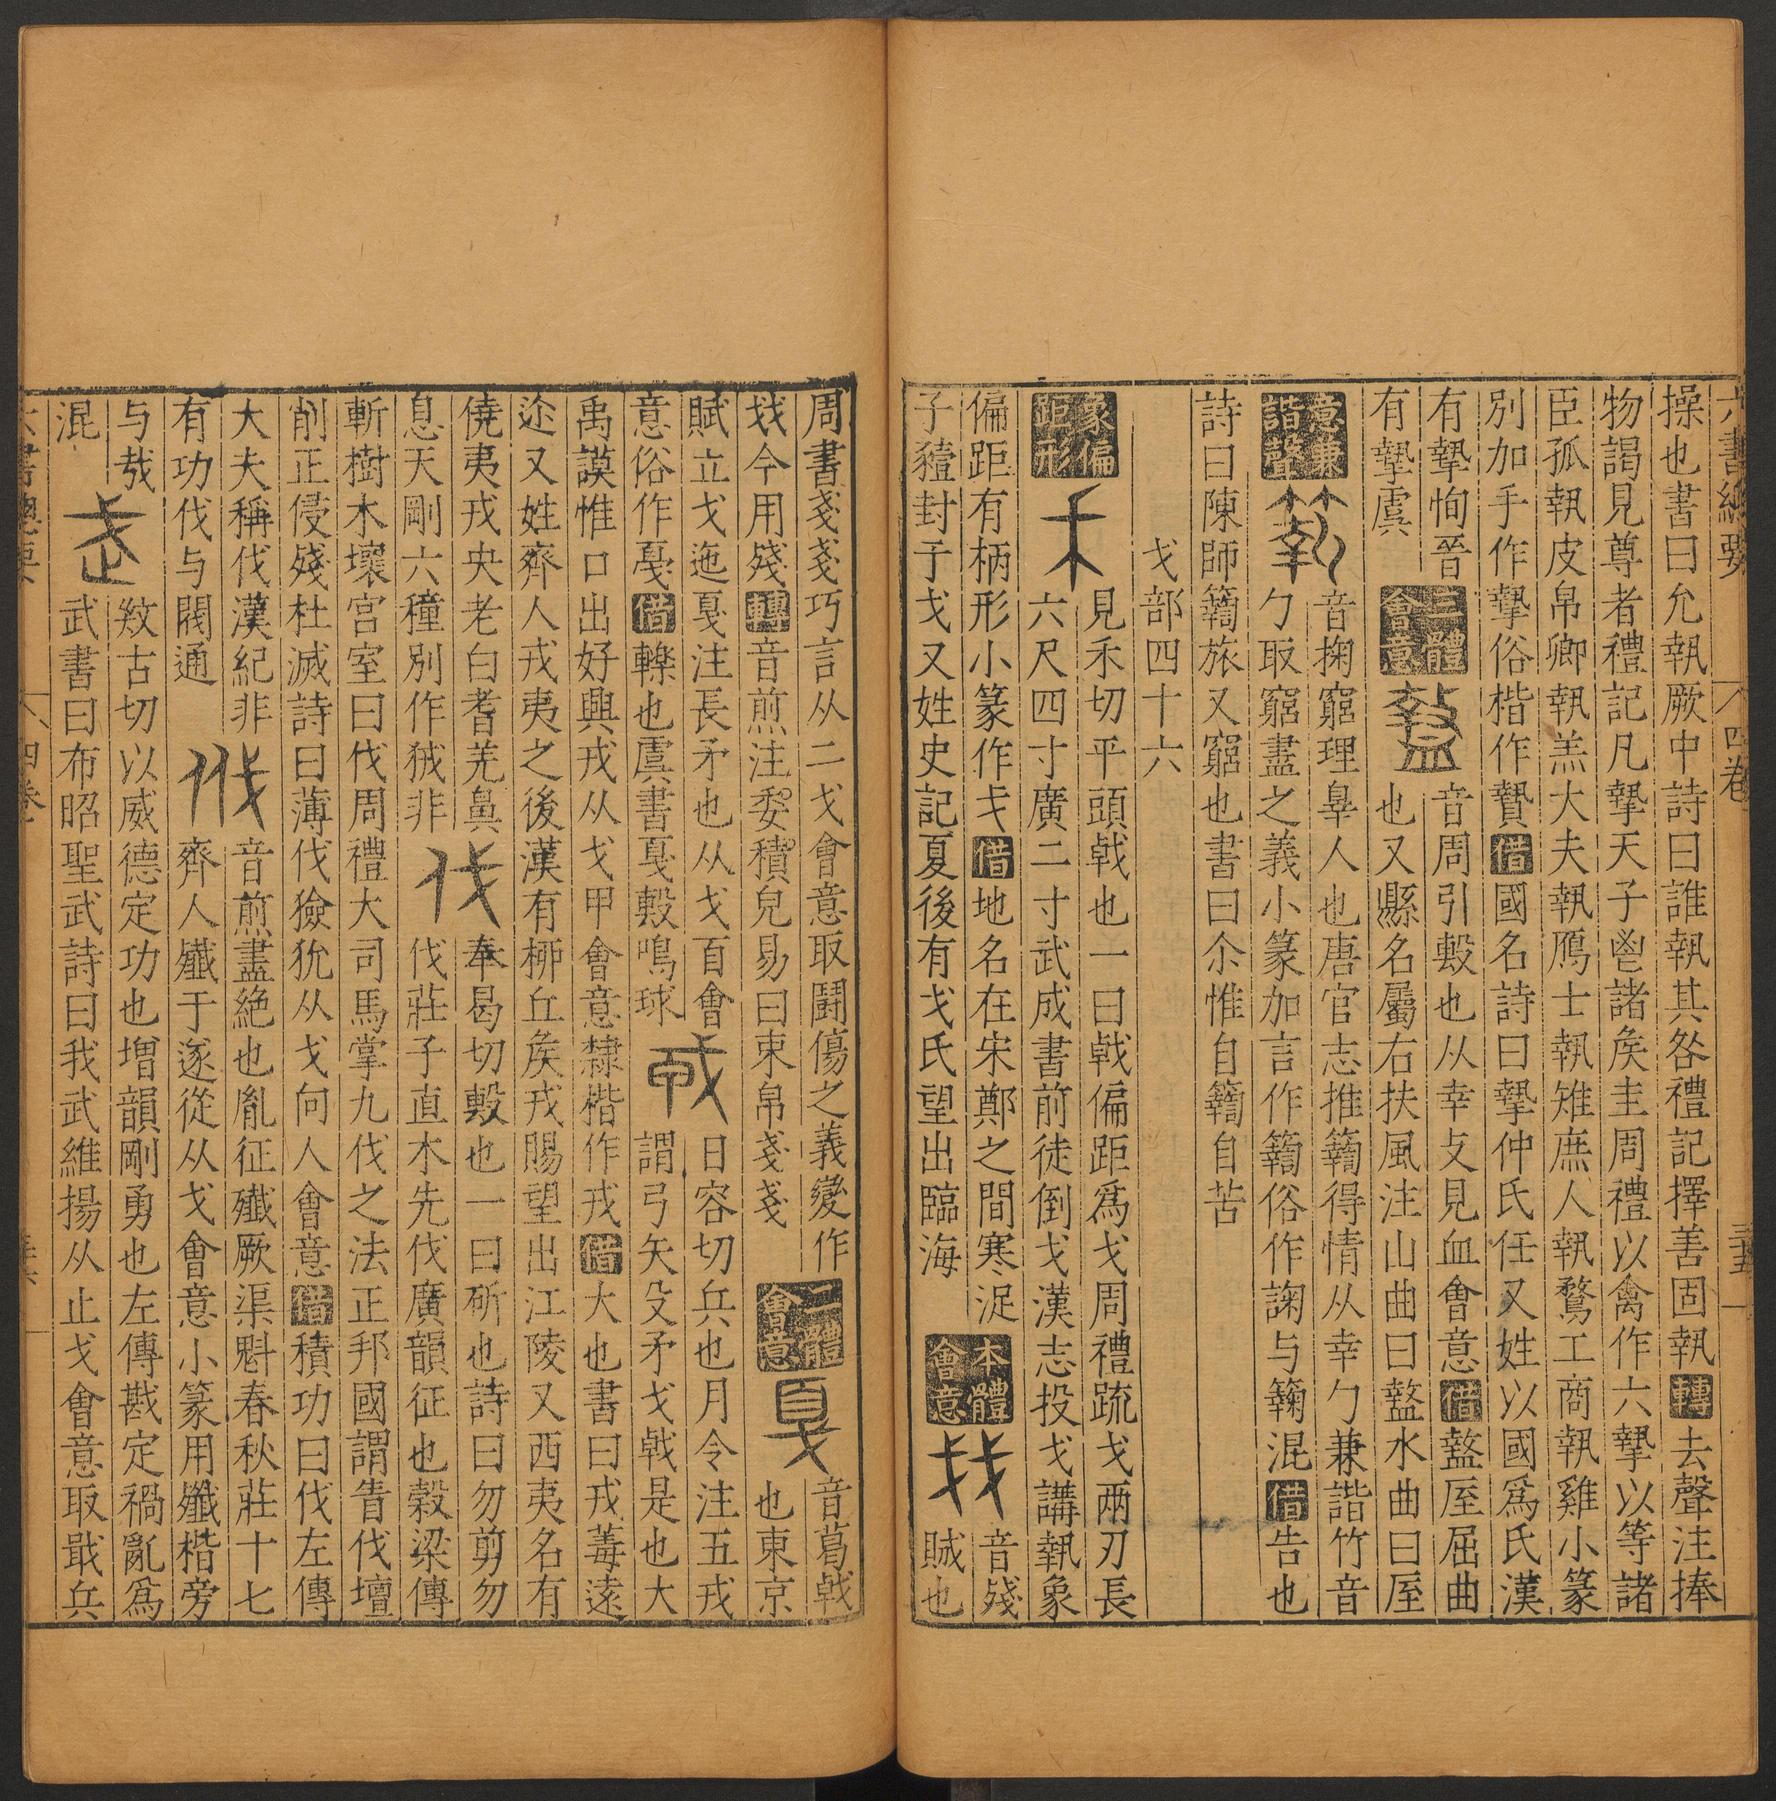 六書總要 四卷 三十五
操也書曰允執厥中詩曰誰執其咎禮記擇善固執轉去聲注捧
物謁見尊者禮記凡摯天子鬯諸矦圭周禮以禽作六摯以等諸
臣孤執皮帛卿執羔大夫執鴈士執雉庶人執鶩工商執雞小篆
別加手作摯俗楷作贄借國名詩曰摯仲氏任又姓以國爲氏漢
有摯恂晉
有摯虞
三體會意
音周引擊也从幸攴見血會意借盩厔屈曲
也又縣名屬右扶風注山曲曰盩水曲曰厔
意兼諧聲
音掬窮理辠人也唐官志推籟得情从幸勹兼諧竹音
勹取窮盡之義小篆加言作俗作諊与鞫混借告也
詩曰陳師旅又窮也書曰尒惟自自苦
戈部四十六
象偏距形
見禾切平頭戟也一曰戟偏距爲戈周禮疏戈兩刃長
六尺四寸廣二寸武成書前徒倒戈漢志投戈講執象
偏距有柄形小篆作戈借地名在宋鄭之間寒浞
子豷封于戈又姓史記夏後有戈氏望出臨海
本體會意
音殘
賊也
周書戔戔巧言从二戈會意取鬪傷之義變作
戔今用殘轉音煎注委積皃易曰束帛戔戔
二體會意
音葛戟
也東京
賦立戈迤戛注長矛也从戈百會
意俗作戞借轢也虞書戛擊鳴球
日容切兵也月令注五戎
謂弓矢殳矛戈戟是也大
禹謨惟口出好興戎从戈甲會意隸楷作戎借大也書曰戎毒遠
迩又姓齊人戎夷之後漢有柳丘矦戎賜望出江陵又西夷名有
僥夷戎央老白耆羌鼻
息天剛六種別作狨非
奉曷切擊也一曰斫也詩曰勿剪勿
伐莊子直木先伐廣韻征也榖梁傳
斬樹木壞宮室曰伐周禮大司馬掌九伐之法正邦國謂眚伐壇
削正侵殘杜滅詩曰薄伐獫狁从戈向人會意借積功曰伐左傳
大夫稱伐漢紀非
有功伐与閥通
音煎盡絕也胤征殲厥渠魁春秋莊十七
齊人殲于遂從从戈會意小篆用殲楷旁
与㦲
混
㪉古切以威德定功也增韻剛勇也左傳戡定禍亂爲
武書曰布昭聖武詩曰我武維揚从止戈會意取戢兵
六書總要 四卷 三十六